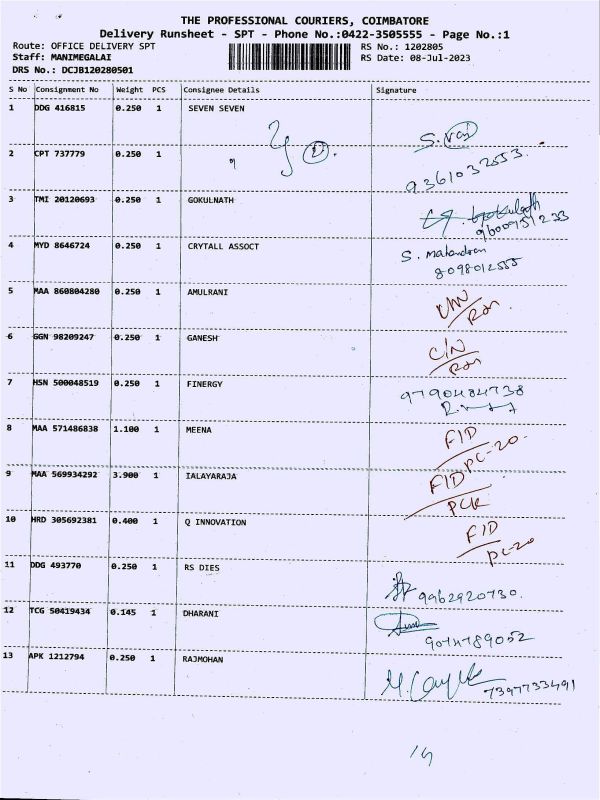 THE PROFESSIONAL COURIERS, COIMBATORE
Delivery Runsheet - SPT - Phone No.:0422-3505555 - Page No.:1
Route: OFFICE DELIVERY SPT RS No.: 1202805
Staff: MANIMEGALAI RS Date: 08-Jul-2023
DRS No.: DCJB120280501
S No Consignment No Weight PCS Consignee Details Signature
1 DDG 416815 0.250 1 SEVEN SEVEN
S.
2 CPT 737779 0.250 1
9361032553.
3 TMI 20120693 0.250 1 GOKULNATH
9600951233
4 MYD 8646724 0.250 1 CRYTALL ASSOCT
8098012555
5 MAA 860804280 0.250 1 AMULRANI
6 GGN 98209247 0.250 1 GANESH
C/N
7 HSN 500048519 0.250 1 FINERGY
9790484738
8 MAA 571486838 1.100 1 MEENA
FID
PC-20
9 MAA 569934292 3.900 1 IALAYARAJA
FID
10 HRD 305692381 0.400 1 Q INNOVATION
FID
PC-20
11 DDG 493770 0.250 1 RS DIES
9962920730.
12 TCG 50419434 0.145 1 DHARANI
9074789052
13 APK 1212794 0.250 1 RAJMOHAN
7397733491